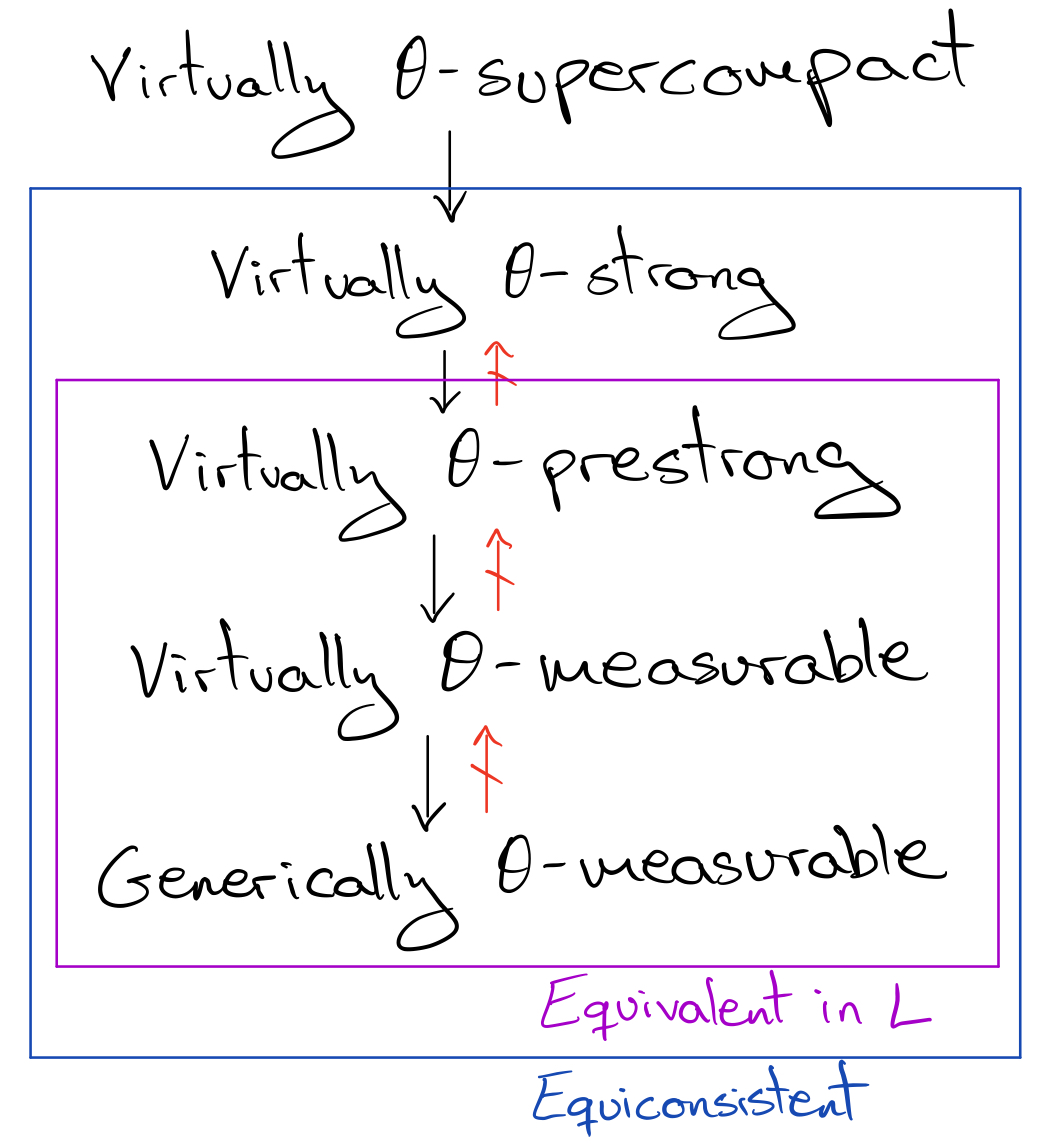 Virtually θ-supercompact
Virtually θ-strong
Virtually θ-prestrong
Virtually θ-measurable
Generically θ-measurable
Equivalent in L
Equiconsistent